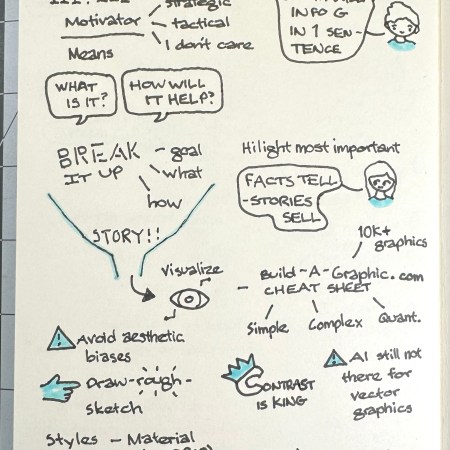 strategic
Motivator
tactical
I don't care
Means
INFO G
IN 1 SEN-
TENCE
WHAT
IS IT?
HOW WILL
IT HELP?
BREAK
IT UP
- goal
what
how
STORY!!
Visualize
Hilight most important
FACTS TELL
-STORIES
SELL
10K+
graphics
- Build-A-Graphic.com
CHEAT SHEET
Simple
Complex
Quant.
! Avoid aesthetic
biases
Draw -rough-
sketch
CONTRAST
IS KING
! AI still not
there for
vector
graphics
Styles - Material